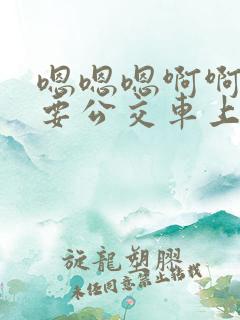 嗯嗯嗯啊啊
要公交車上
旋龍塑膠
未任同意禁止拍栈